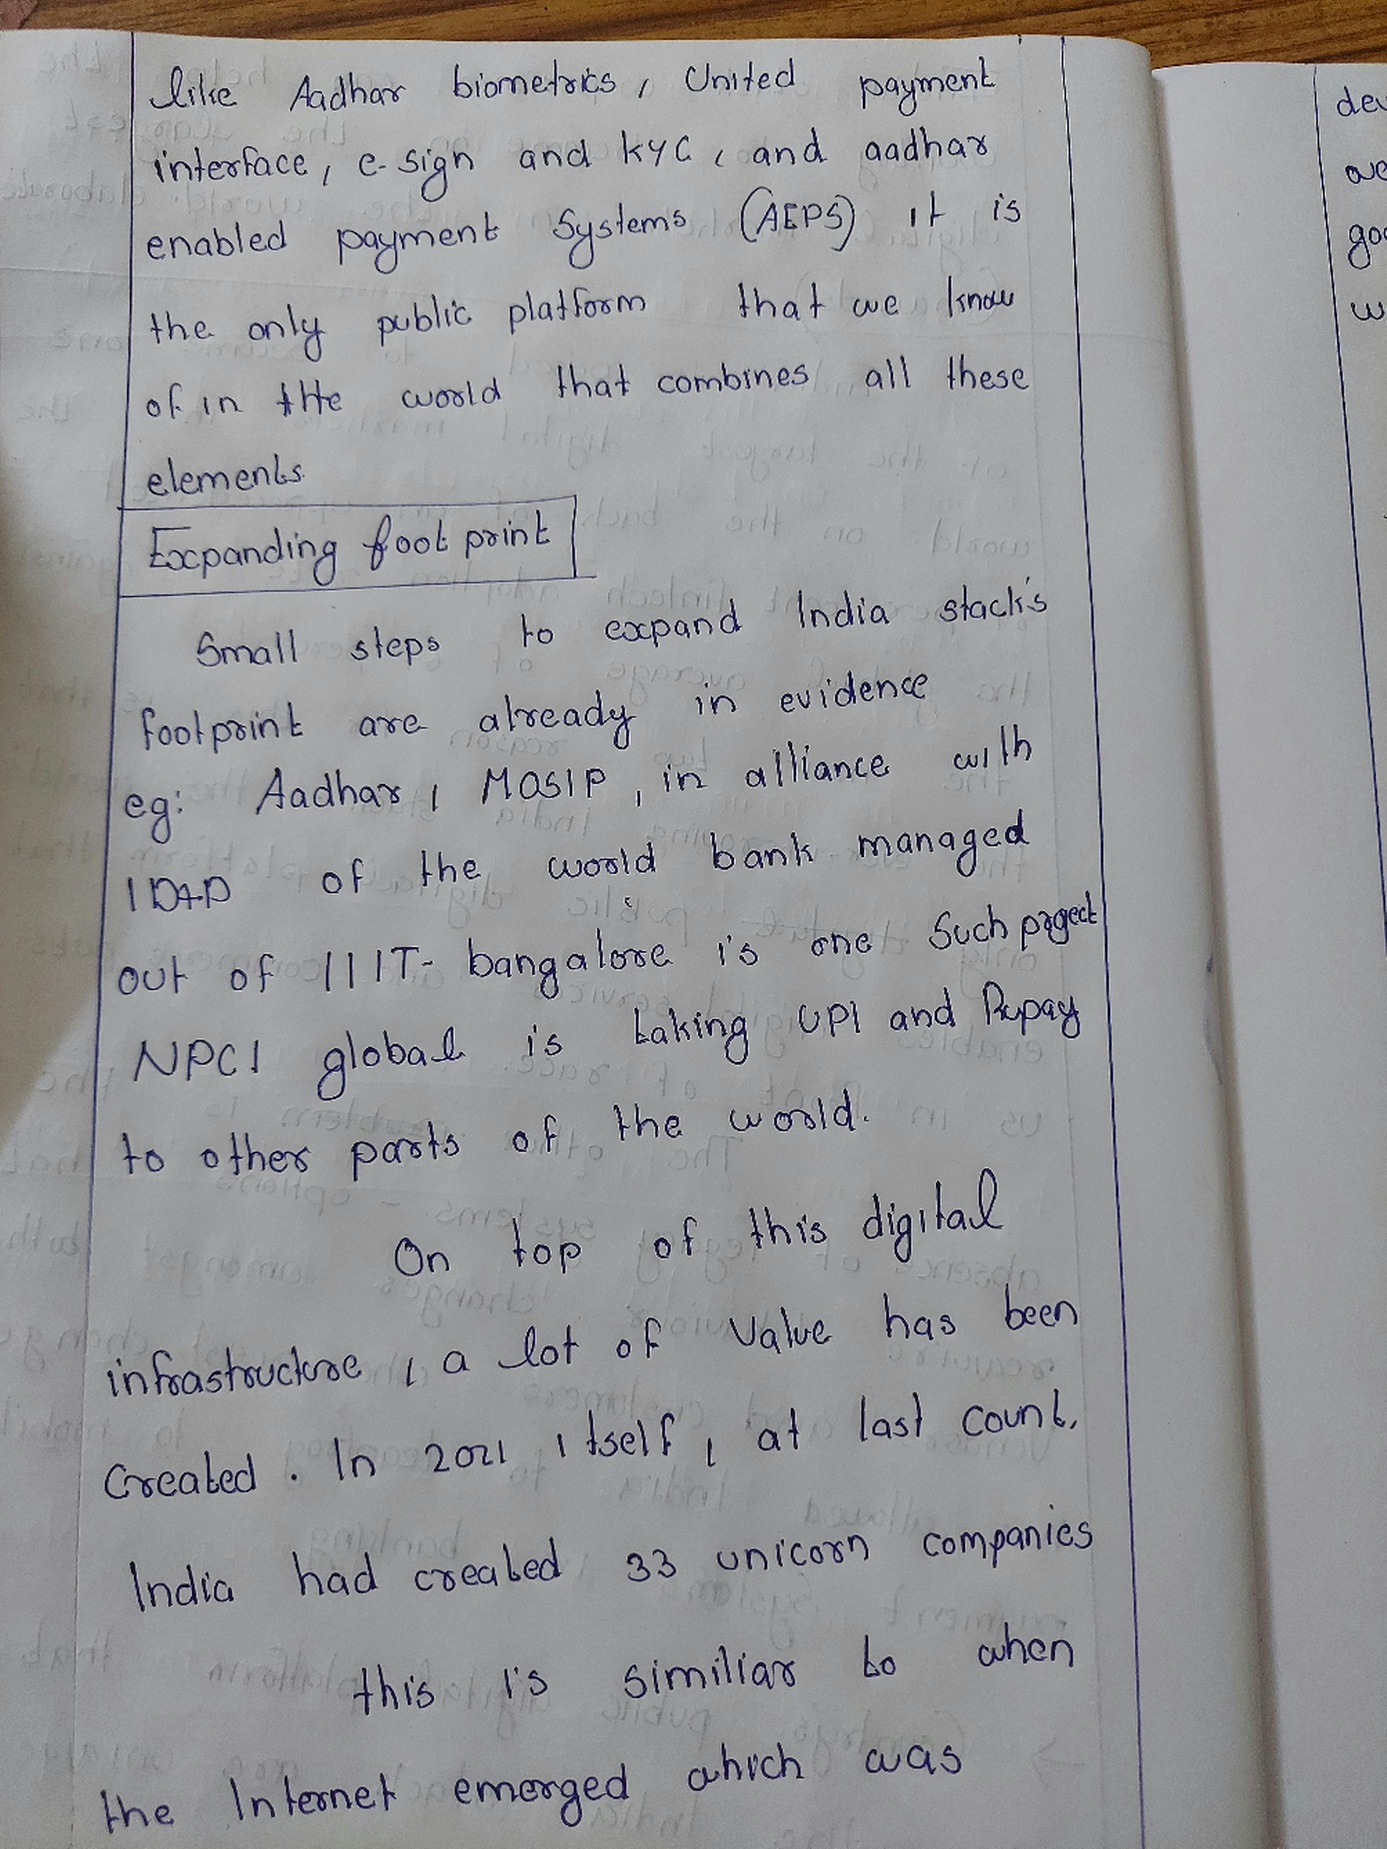 like Aadhar biometrics, United payment
interface, e-sign and KYC, and aadhar
enabled payment Systems (AEPS) it is
the only public platform that we know
of in the world that combines all these
elements.
Expanding foot print
Small steps to expand India stack's
footprint are already in evidence
eg: Aadhar, MOSIP, in alliance with
ID4D of the world bank managed
out of IIIT- bangalore is one such project
NPCI global is taking UPI and Rupay
to other parts of the world.
On top of this digital
infrastructure, a lot of value has been
Created. In 2021 itself, at last count,
India had created 33 unicorn companies
this is similiar to when
the Internet emerged which was
dev
ove
goo
w